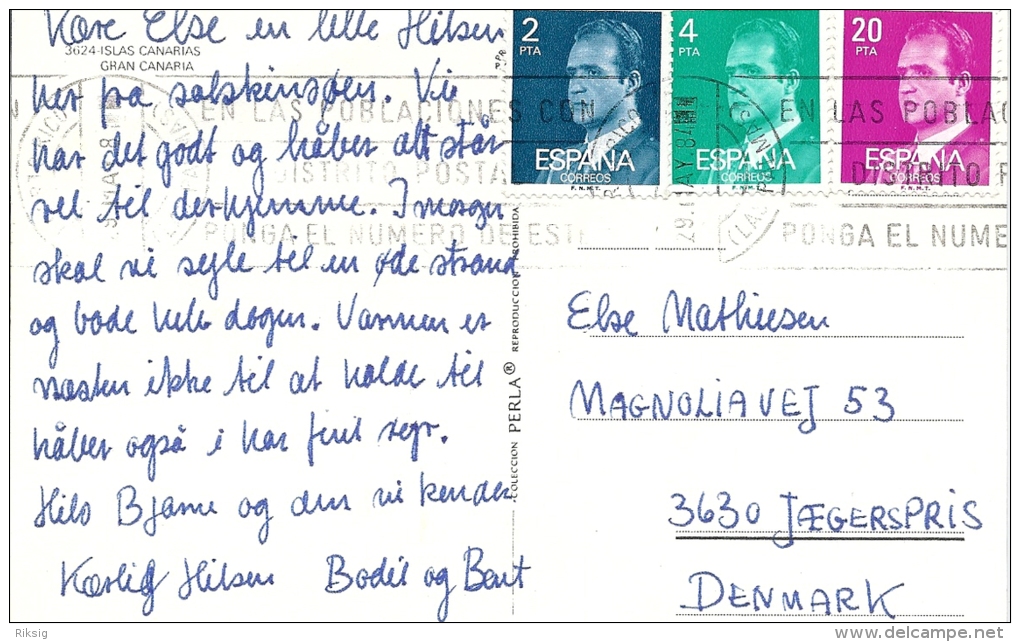 Kære Else en lille Hilsen
3624-ISLAS CANARIAS
GRAN CANARIA
her på solskinsøen. Vie
har det godt og håber alt står
vel til derhjemme. I morgen
skal vi sejle til en øde strand
og bade hele dagen. Vannen er
næsten ikke til at holde til
håber også i har fint vejr.
Hils Bjarne og dem vi kender
Kærlig Hilsen Bodil og Bent
2
PTA
ESPAÑA
CORREOS
F.N.M.T.
4
PTA
ESPAÑA
CORREOS
F.N.M.T.
20
PTA
ESPAÑA
CORREOS
F.N.M.T.
EN LAS POBLACIONES CON
DISTRITO POSTA
PONGA EL NUMERO DE EST
29 MAY 84
EN LAS POBLAC
DISTRITO P
PONGA EL NUME
COLECCION PERLA® REPRODUCCION PROHIBIDA
Else Mathiesen
MAGNOLIAVEJ 53
3630 JÆGERSPRIS
DENMARK
Riksig
delcampe.net